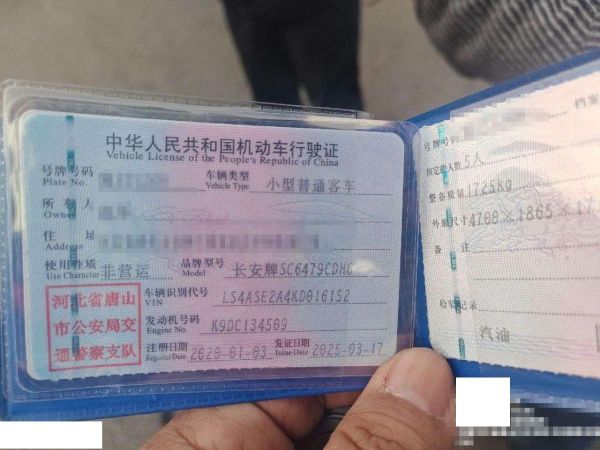 中华人民共和国机动车行驶证
Vehicle License of the People's Republic of China
号牌号码
Plate No.
车辆类型
Vehicle Type
小型普通客车
所有人
Owner
住 址
Address
使用性质
Use Character
非营运
品牌型号
Model
长安牌SC6479CDH
河北省唐山
市公安局交
通警察支队
车辆识别代号
VIN
LS4ASE2A4KD016152
发动机号码
Engine No.
K9DC134509
注册日期
Register Date
2020-01-03
发证日期
Issue Date
2025-03-17
档案
号牌号码
核定载人数 5人
整备质量 1725kg
外廓尺寸 4700×1865×17
备 注
检验记录
汽油